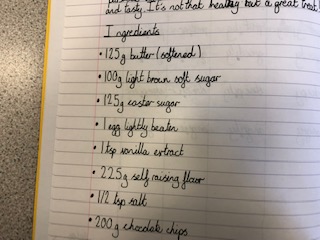 and tasty. It's not that healthy but a great treat!
Ingredients
• 125g butter (softened)
• 100g light brown soft sugar
• 125g caster sugar
• 1 egg lightly beaten
• 1 tsp vanilla extract
• 225g self raising flour
• 1/2 tsp salt
• 200g chocolate chips